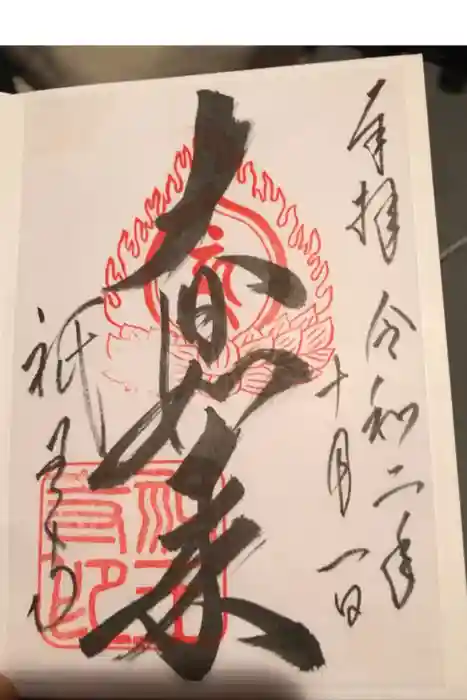 奉拝
令和二年
十月一日
大日如来
祇